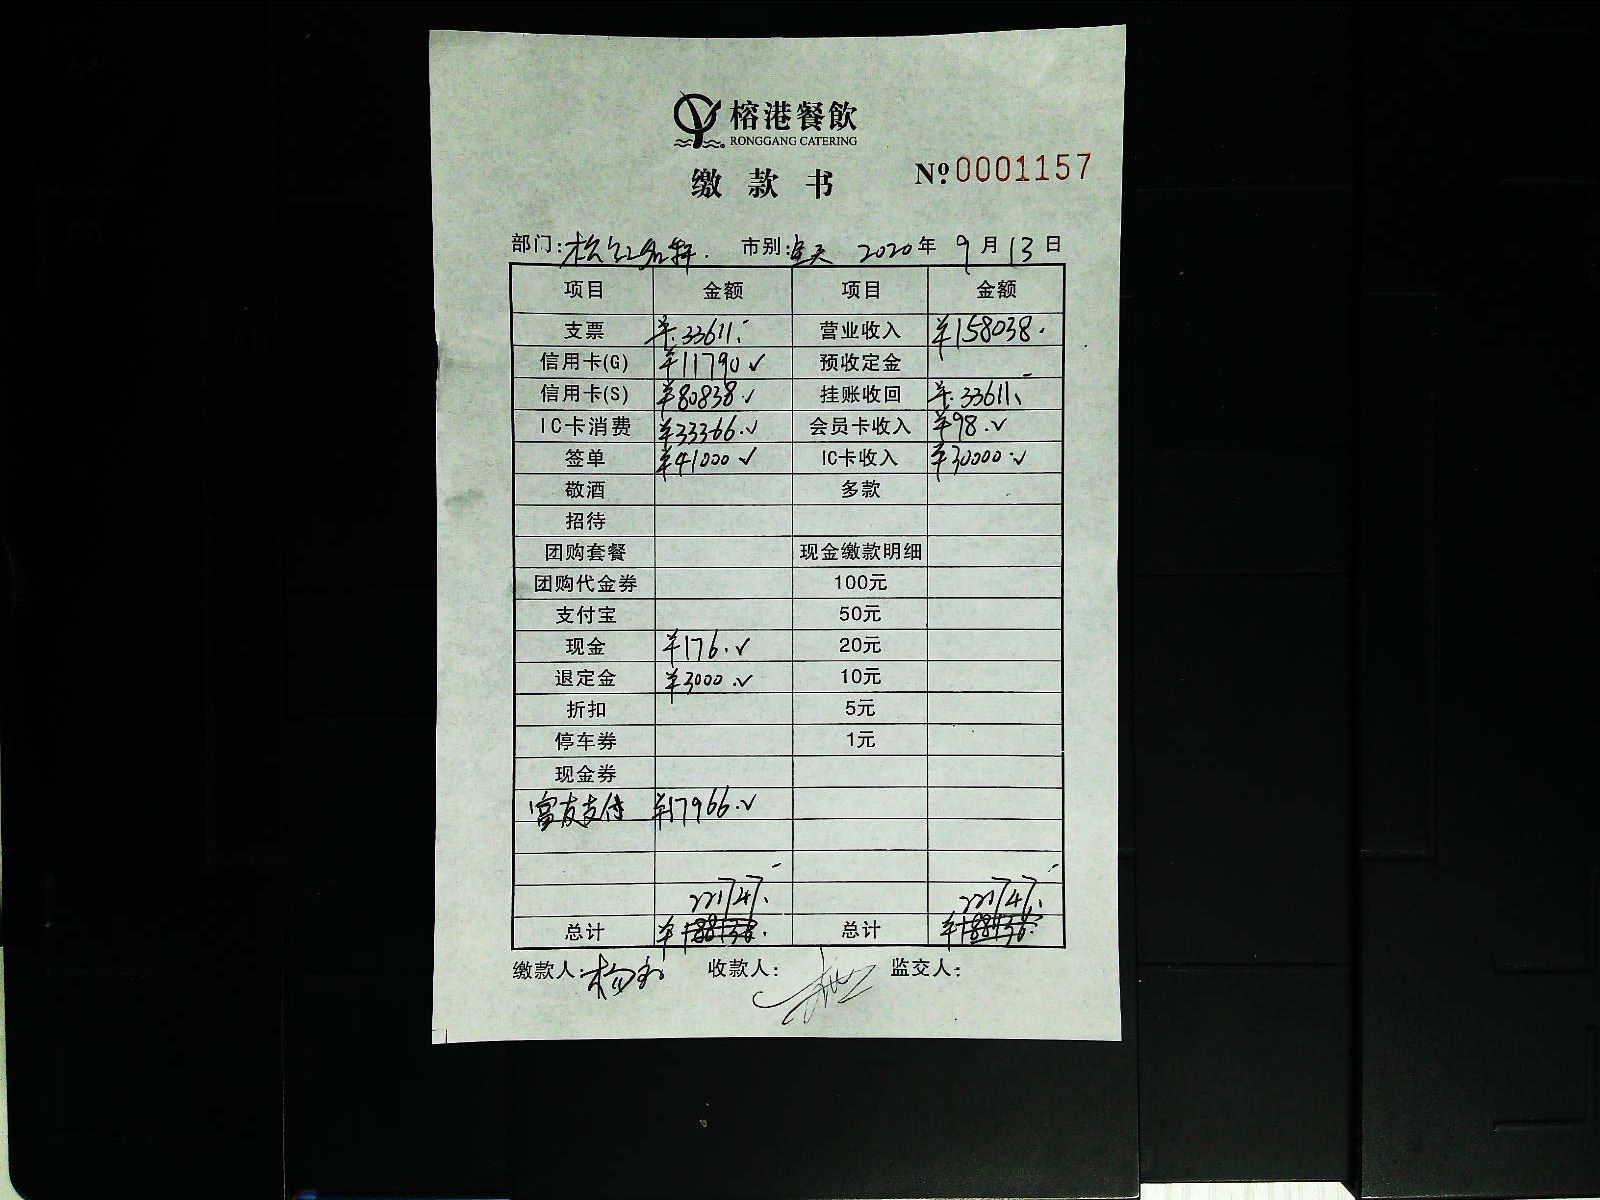 榕港餐飲
RONGGANG CATERING
缴款书 Nº 0001157
部门: 松江名轩. 市别: 全天 2020年 9月13日
项目 金额 项目 金额
支票 ¥33611. 营业收入 ¥158038.
信用卡(G) ¥11790 ✓ 预收定金
信用卡(S) ¥80838. ✓ 挂账收回 ¥33611.
IC卡消费 ¥33366. ✓ 会员卡收入 ¥98. ✓
签单 ¥41000 ✓ IC卡收入 ¥30000. ✓
敬酒 多款
招待
团购套餐 现金缴款明细
团购代金券 100元
支付宝 50元
现金 ¥176. ✓ 20元
退定金 ¥3000. ✓ 10元
折扣 5元
停车券 1元
现金券
富友支付 ¥17966. ✓
221747. 221747.
总计 ¥188136. 总计 ¥188136.
缴款人: 杨 收款人: 监交人: